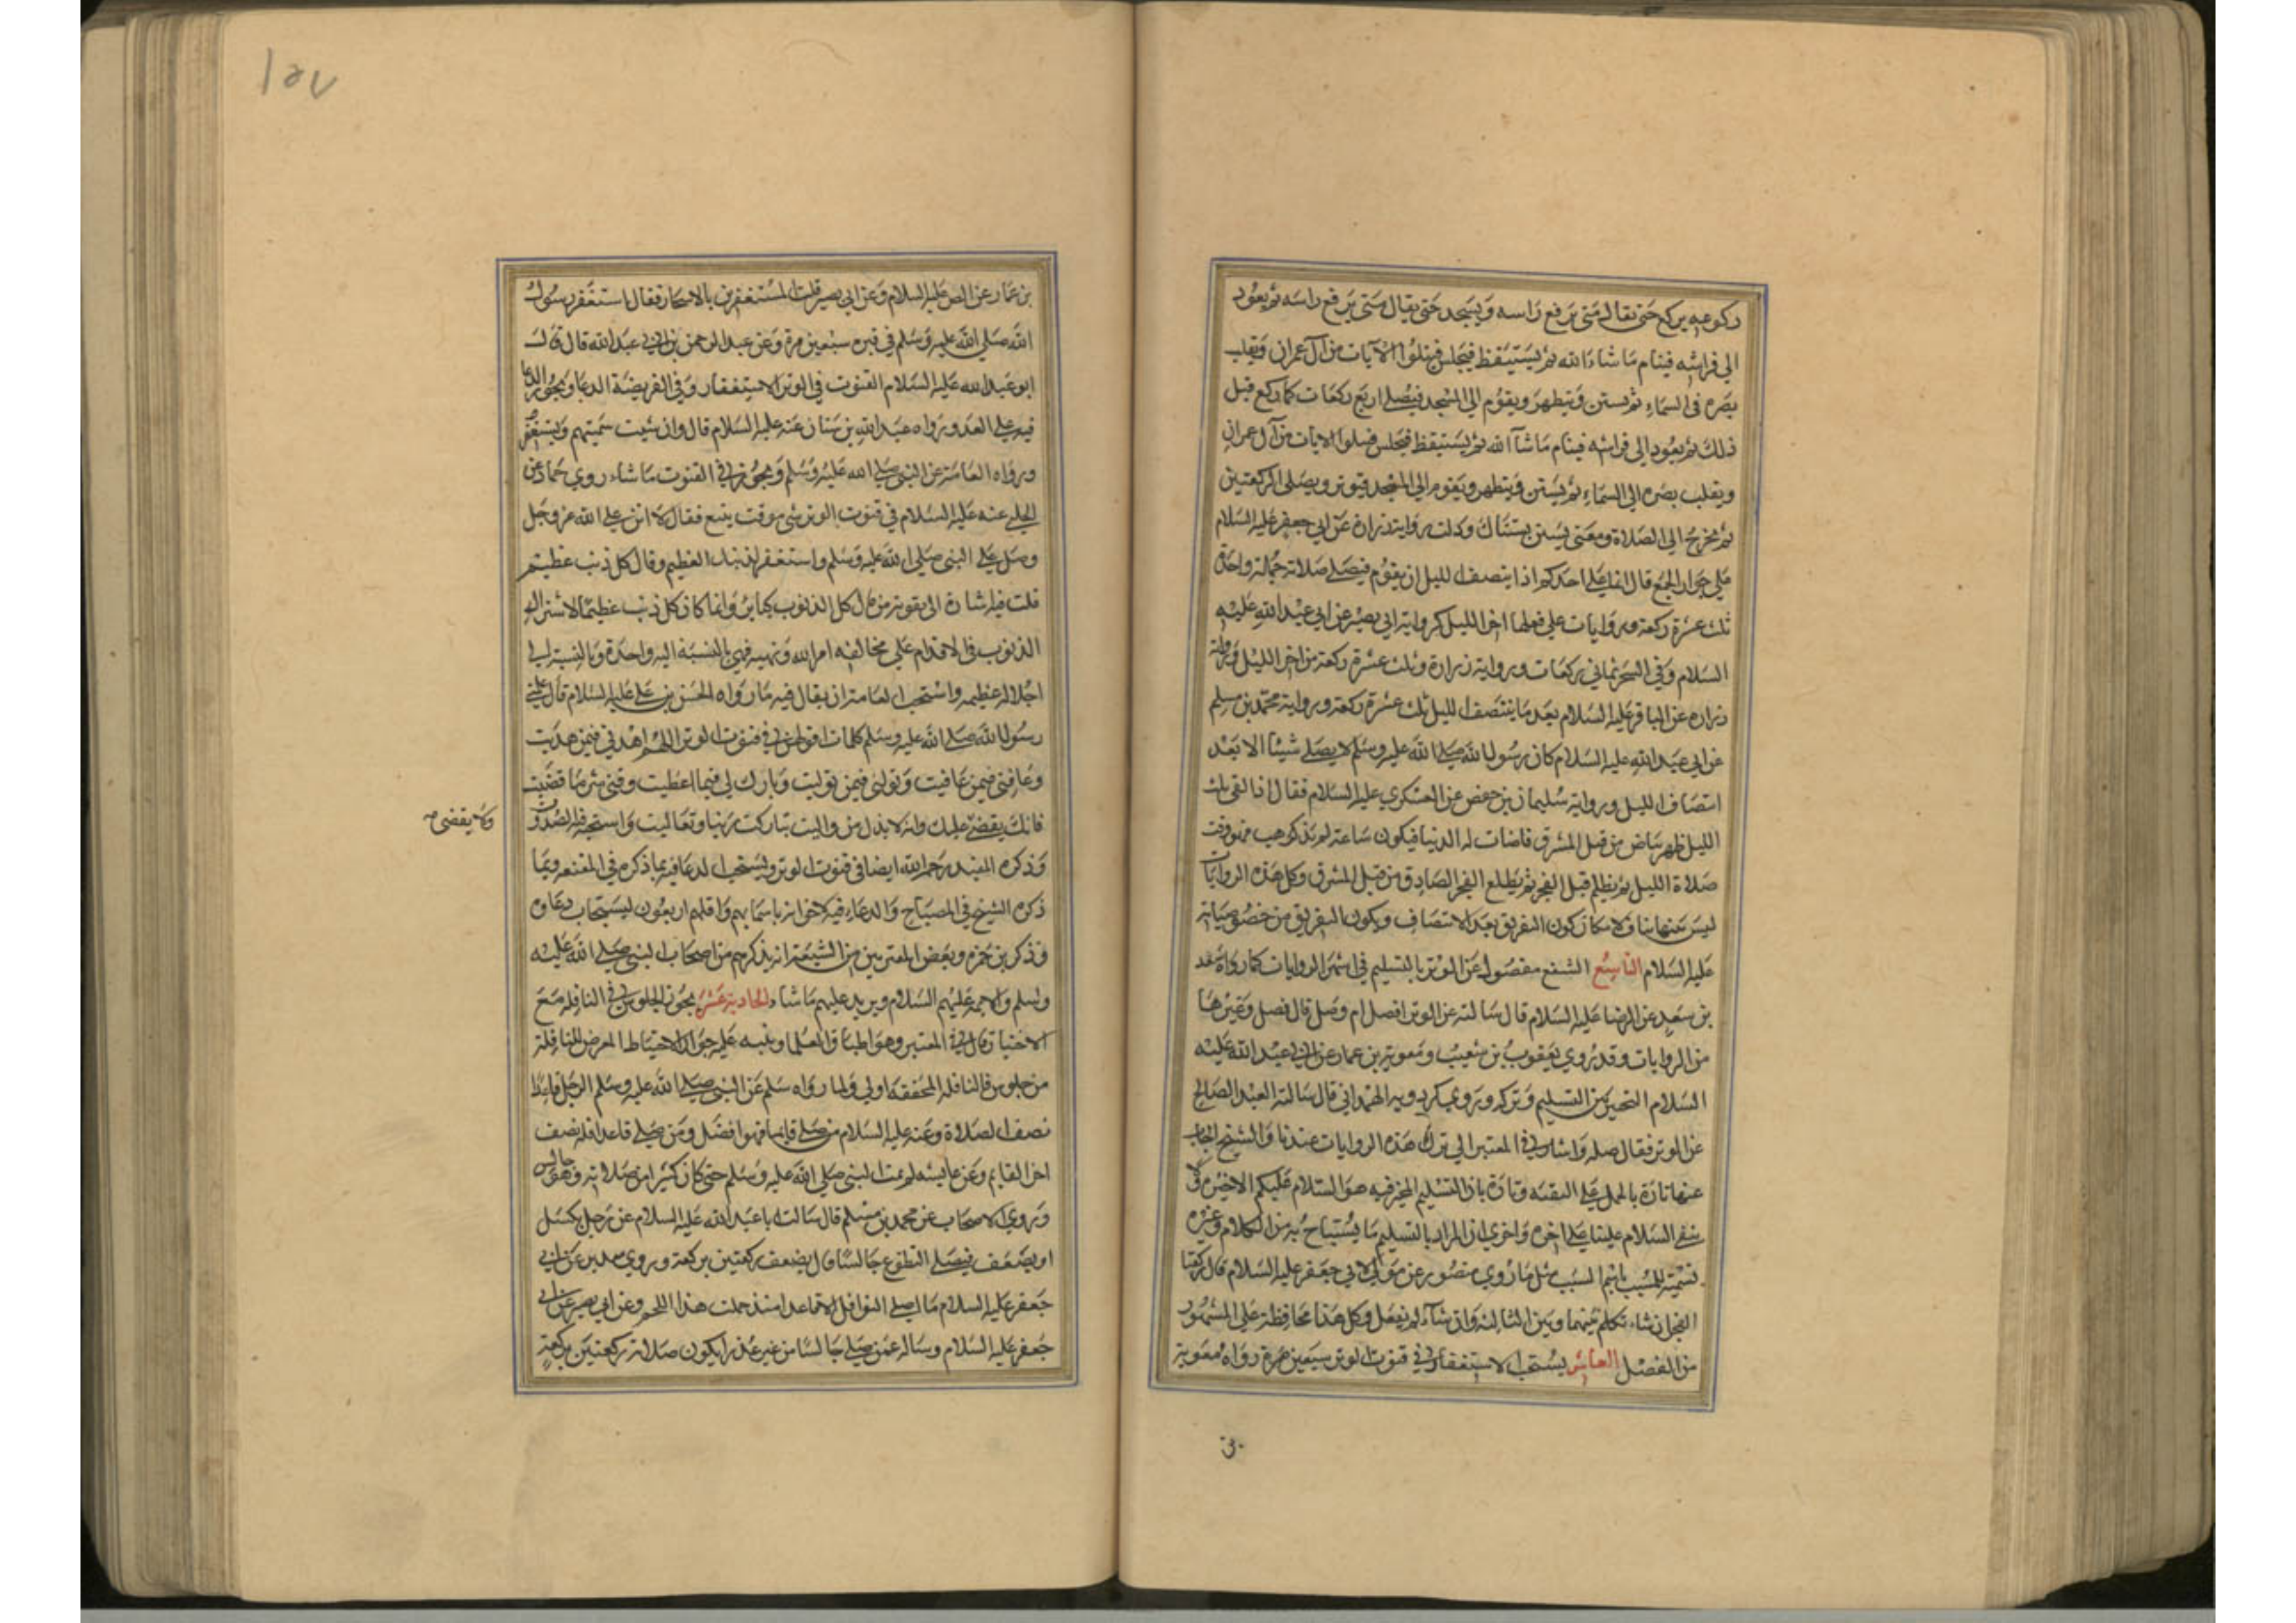 ركوعه يركع حتى يقال متى يرفع راسه ويسجد حتى يقال متى يرفع راسه ثم يعود
الى فراشه فينام ما شاء الله ثم يستيقظ فيجلس فيتلوا الآيات من آل عمران ويقلب
بصره في السماء ثم يستن ويتطهر ويقوم الى المسجد فيصلى اربع ركعات كما ركع قبل
ذلك ثم يعود الى فراشه فينام ما شآ الله ثم يستيقظ فيجلس فيتلوا الايات من آل عمران
ويقلب بصره الى السماء ثم يستن ويتطهر ويقوم الى المسجد فيوتر ويصلى الركعتين
ثم يخرج الى الصلاة ومعنى يستن يستاك ودلت رواية زرارة عن ابي جعفر عليه السلام
على جواز الجمع قال انما على احدكم اذا ينتصف الليل ان يقوم فيصلى صلاته جملة واحدة
ثلث عشرة ركعة وروايات على فعلها اخر الليل كرواية ابي بصير عن ابي عبد الله عليه
السلام وفي السحر ثماني ركعات ورواية زرارة وثلث عشرة ركعة من اخر الليل ورواية
زرارة عن الباقر عليه السلام بعد ما ينتصف الليل ثلث عشرة ركعة ورواية محمد بن مسلم
عن ابي عبد الله عليه السلام كان رسول الله صلى الله عليه وسلم لا يصلى شيئا الا بعد
انتصاف الليل ورواية سليمان بن حفص عن العسكري عليه السلام فقال اذا لقى ثلث
الليل ظهر بياض من قبل المشرق فاضات له الدنيا فيكون ساعة ثم يذهب وهو وقت
صلاة الليل ثم يظلم قبل الفجر ثم يطلع الفجر الصادق من قبل المشرق وكل هذه الروايات
ليس بينها تناف لامكان كون التفريق بعد الانتصاف ويكون التفريق من خصوصياته
عليه السلام التاسع الشفع مفصول عن الوتر بالتسليم في اشهر الروايات كما رواه سعد
بن سعد عن الرضا عليه السلام قال سالته عن الوتر افصل ام وصل قال فصل وغيرها
من الروايات وقد روى يعقوب بن شعيب ومعوية بن عمار عن ابي عبد الله عليه
السلام التخيير بين التسليم وتركه وروى كردويه الهمداني قال سالت العبد الصالح
عن الوتر فقال صله واشار في المعتبر الى ترك هذه الروايات عندنا والشيخ اجاب
عنها تارة بالحمل على التقية وتارة بان التسليم المخير فيه هو السلام عليكم الاخيرة
ينفى السلام علينا على اخره واخرى ان المراد بالتسليم ما يستباح به من الكلام وغيره
تسمية للمسبب باسم السبب مثل ما روى منصور عن مولى لابي جعفر عليه السلام قال ركعتا
الفجر ان شاء تكلم بينهما وبين الثالثة وان شآء لم يفعل وكل هذا محافظة على المشهور
من الفصل العاشر يستحب الاستغفار في قنوت الوتر سبعين مرة رواه معوية
بن
١٥٧
بن عمار عن الص عليه السلام وعن ابي بصير قلت المستغفرين بالاسحار فقال استغفر رسول
الله صلى الله عليه وسلم في قبره سبعين مرة وعن عبد الرحمن بن ابي عبد الله قال قال
ابو عبد الله عليه السلام القنوت في الوتر الاستغفار وفي الفريضة الدعا ويجوز الدعا
فيه على العدو رواه عبد الله بن سنان عنه عليه السلام قال وان شيت سميتهم وتستغفر
ورواه العامة عن النبي صلى الله عليه وسلم ويجوز في القنوت ما شاء روى حماد عن
الحلبي عنه عليه السلام في قنوت الوتر شى موقت يتبع فقال لا اثن على الله عز وجل
وصل على النبى صلى الله عليه وسلم واستغفر لذنبك العظيم وقال كل ذنب عظيم
قلت فيه اشارة الى تقوية من قال كل الذنوب كباير وانما كان كل ذنب عظيما لاشتراك
الذنوب في الاقدام على مخالفه امر الله ونهيه فهي بالنسبة اليه واحدة وبالنسبة الى
اجلاله عظيمه واستحب العامة ان يقال فيه ما رواه الحسن بن على عليه السلام قال علمني
رسول الله صلى الله عليه وسلم كلمات اقولهن في قنوت الوتر اللهم اهدني فيمن هديت
وعافنى فيمن عافيت وتولنى فيمن توليت وبارك لى فيما اعطيت وقنى شر ما قضيت
فانك يقضى عليك وانه لا يذل من واليت تباركت ربنا وتعاليت واستحبه الصدوق
ولا يقضى
وذكره المفيد رحمه الله ايضا في قنوت الوتر وليستحب الدعا فيه بما ذكره في المقنعه وبما
ذكره الشيخ في المصباح والدعاء فيه لاخوانه باسمايهم واقلهم اربعون ليستجاب دعاوه
وذكر بن حمزه وبعض المعتبرين من الشيعة انه يذكرهم من اصحاب النبى صلى الله عليه
وسلم والايمة عليهم السلام ويزيد عليهم ما شاء الحادية عشر يجوز الجلوس في النافلة مع
الاختيار قال في المعتبر وهو اطباق العلما وينبه عليه جواز الاحتياط المعرض للنافلة
من جلوس فالنافلة المحققة اولى ولما رواه سلم عن النبى صلى الله عليه وسلم الرجل قاعدا
نصف الصلاة وعنه عليه السلام من صلى قايما فهو افضل ومن صلى قاعدا فله نصف
اجر القايم وعن عايشة لم يمت النبى صلى الله عليه وسلم حتى كان كثير من صلاته وهو جالس
وروى الاصحاب عن محمد بن مسلم قال سالت ابا عبد الله عليه السلام عن رجل يكسل
او يضعف فيصلى التطوع جالسا قال يضعف ركعتين بركعة وروى سدير عن ابي
جعفر عليه السلام ما اصلى النوافل الا قاعدا منذ حملت هذا اللحم وعن ابي بصير عن ابي
جعفر عليه السلام وساله عمن صلى جالسا من غير عذر ايكون صلاته ركعتين بركعة